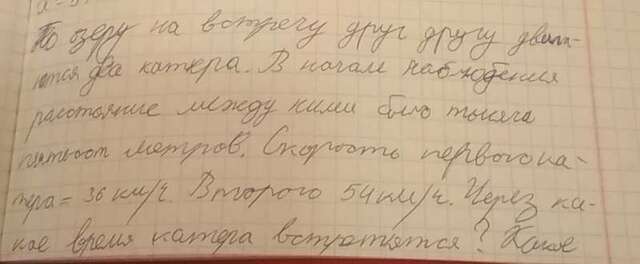 По озеру на встречу друг другу двига-
ются два катера. В начале наблюдения
расстояние между ними было тысяча
пятьсот метров. Скорость первого ка-
тера = 36 км/ч. Второго 54 км/ч. Через ка-
кое время катера встретятся? Какое